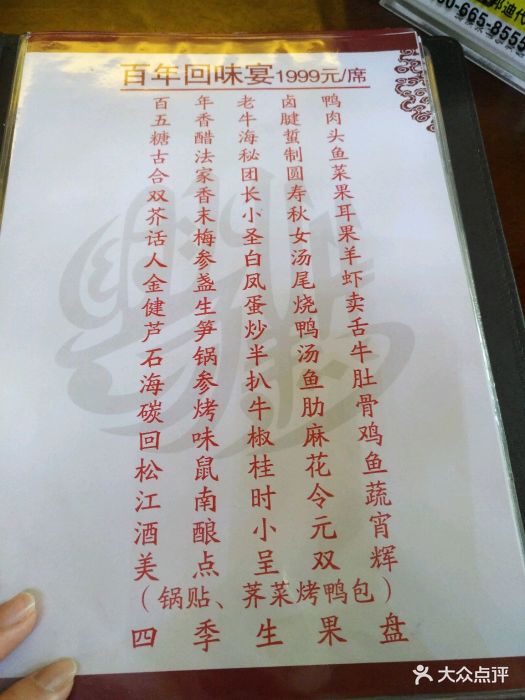 邦迪代
0-665-8555
百年回味宴1999元/席
百年老卤鸭
五香牛腱肉
糖醋海蜇头
古法秘制鱼
合家团圆菜
双香长寿果
芥末小秋耳
话梅圣女果
人参白汤羊
金盏凤尾虾
健生蛋烧卖
芦笋炒鸭舌
石锅半汤牛
海参扒鱼肚
碳烤牛肋骨
回味椒麻鸡
松鼠桂花鱼
江南时令蔬
酒酿小元宵
美点呈双辉
（锅贴、荠菜烤鸭包）
四季生果盘
大众点评